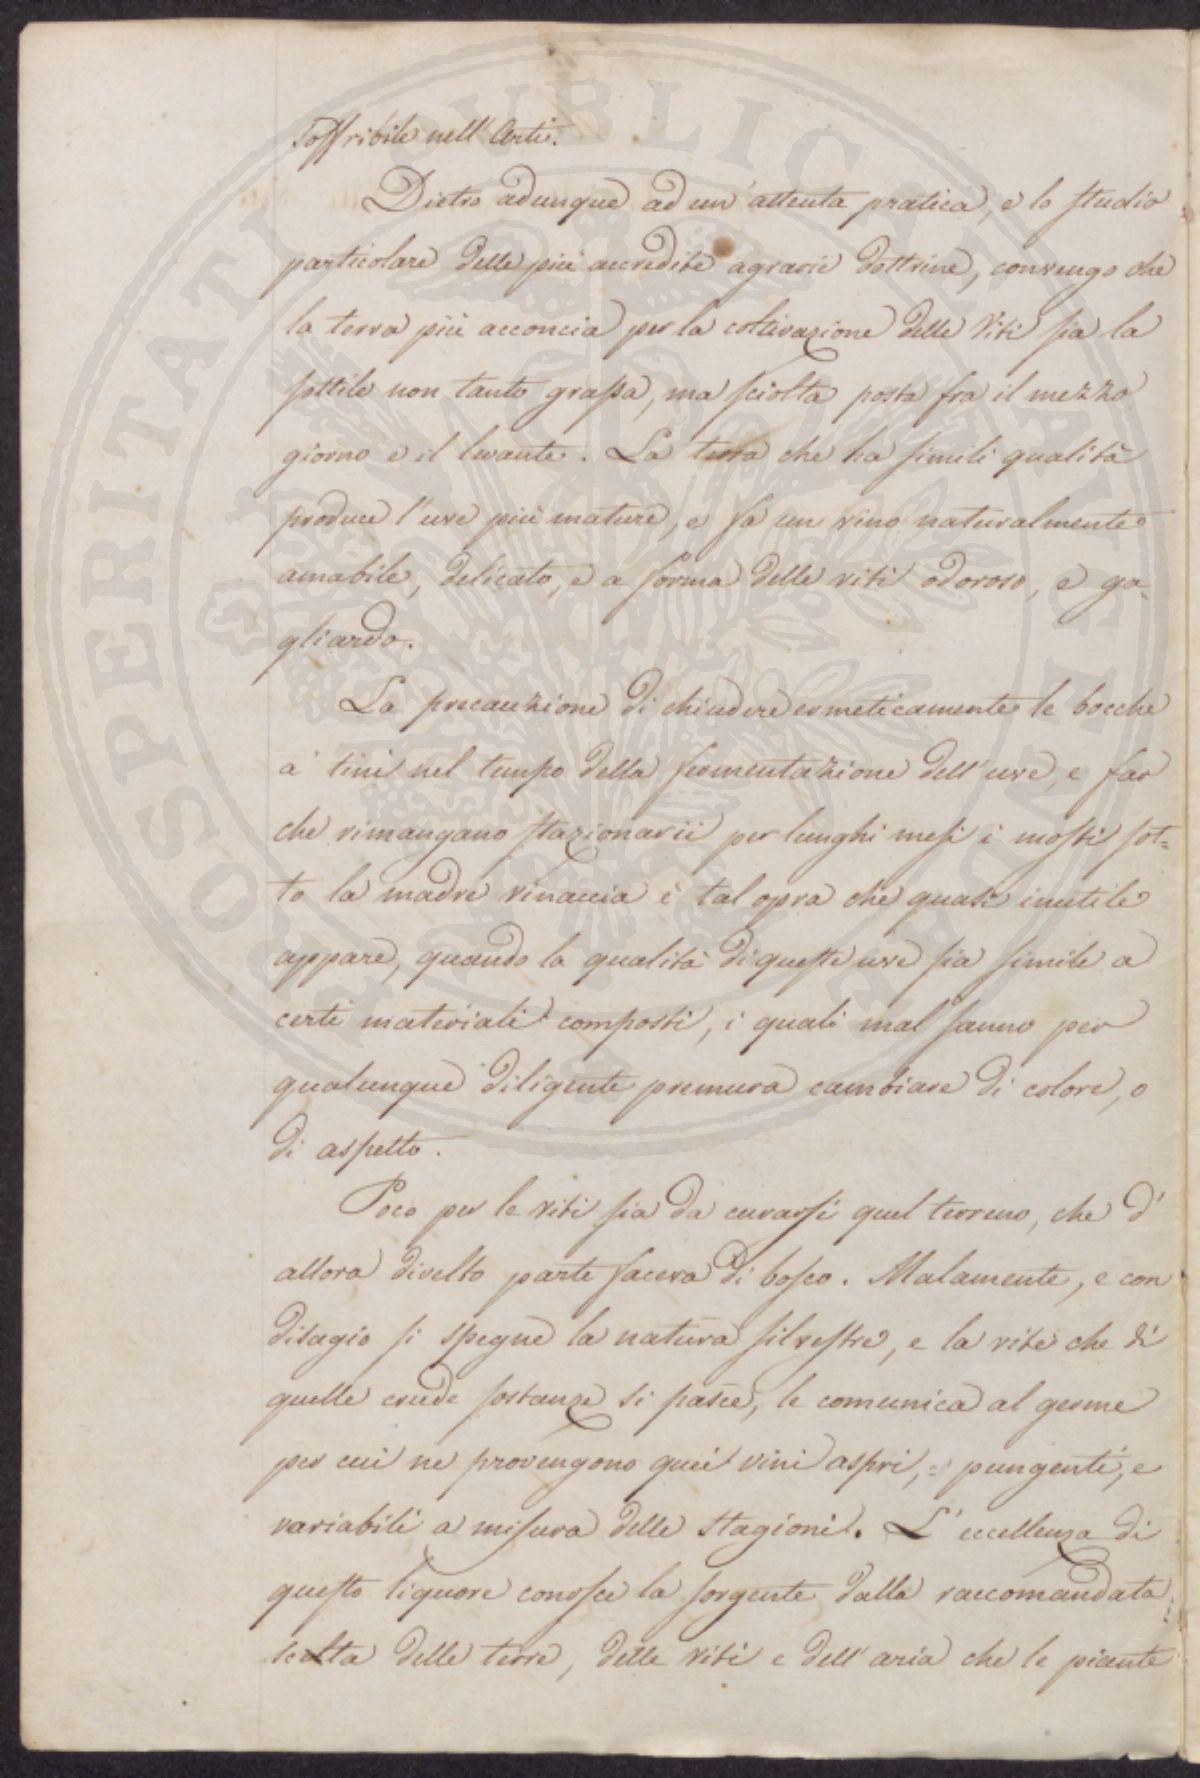 soffribile nell'Arte.
Dietro adunque ad un'attenta pratica, e lo studio
particolare delle più accredite agrarie dottrine, convengo che
la terra più acconcia per la coltivazione delle Viti sia la
sottile non tanto grassa, ma sciolta posta fra il mezzo
giorno e il levante. La terra che ha simili qualità
produce l'uve più mature, e fa un vino naturalmente
amabile, delicato, e a forma delle viti odoroso, e ga-
gliardo.
La precauzione di chiudere ermeticamente le bocche
a' tini nel tempo della fermentazione dell'uve, e far
che rimangano stazionarii per lunghi mesi i mosti sot=
to la madre vinaccia è tal opra che quasi inutile
appare, quando la qualità di queste uve sia simile a
certi materiali composti, i quali mal sanno per
qualunque diligente premura cambiare di colore, o
di aspetto.
Poco per le viti sia da curarsi quel terreno, che d'
allora divelto parte faceva di bosco. Malamente, e con
disagio si spegne la natura silvestre, e la vite che di
quelle crude sostanze si pasce, le comunica al germe
per cui ne provengono quei vini aspri, e pungenti, e
variabili a misura delle stagioni. L'eccellenza di
questo liquore conosce la sorgente dalla raccomandata
scelta delle terre, delle viti e dell'aria che le piante
PROSPERITATI PUBLICAE AUGENDAE